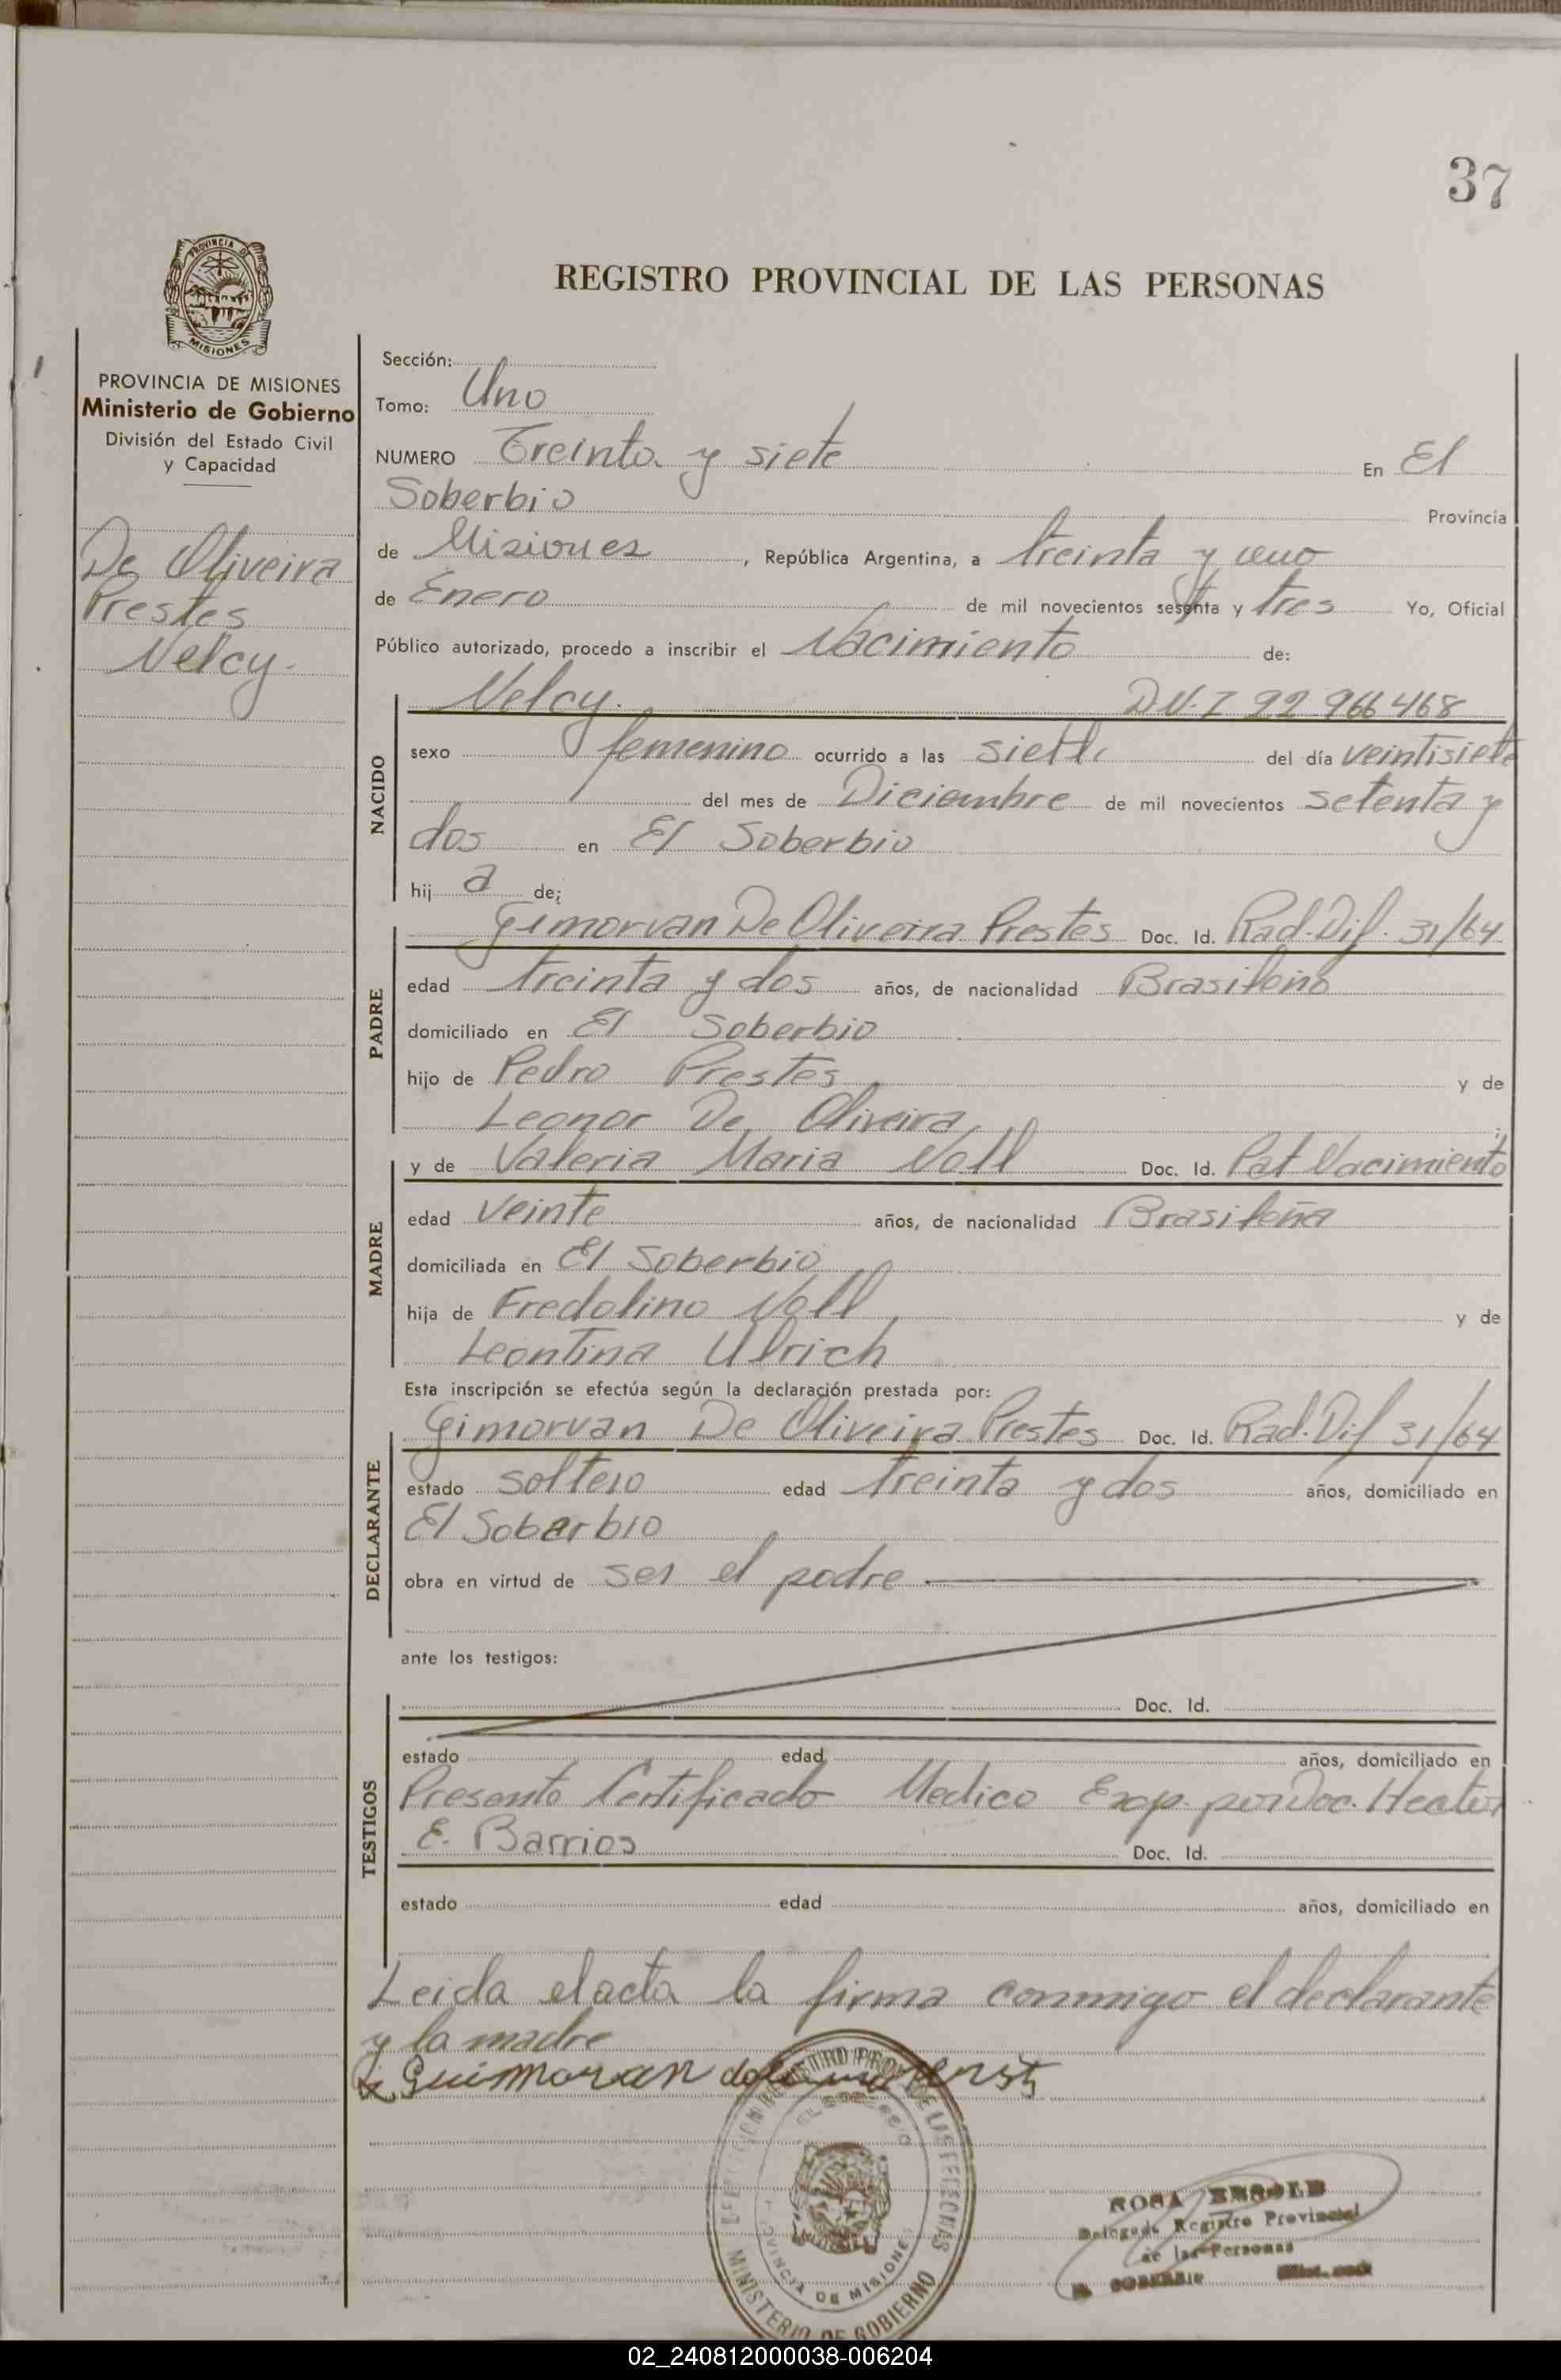 37
PROVINCIA DE
MISIONES
REGISTRO PROVINCIAL DE LAS PERSONAS
PROVINCIA DE MISIONES
Ministerio de Gobierno
División del Estado Civil
y Capacidad
De Oliveira
Prestes
Nelcy.
Sección:
Tomo: Uno
NUMERO Treinta y siete En El
Soberbio Provincia
de Misiones, República Argentina, a treinta y uno
de Enero de mil novecientos setenta y tres Yo, Oficial
Público autorizado, procedo a inscribir el Nacimiento de:
NACIDO
Nelcy. D.N.I 22.966468
sexo femenino ocurrido a las siete del día veintisiete
del mes de Diciembre de mil novecientos setenta y
dos en El Soberbio
hij a de:
PADRE
Gimorvan De Oliveira Prestes Doc. Id. Rad. Dif. 31/64
edad treinta y dos años, de nacionalidad Brasileño
domiciliado en El Soberbio
hijo de Pedro Prestes y de
Leonor De Oliveira
MADRE
y de Valeria Maria Noll Doc. Id. Pat Nacimiento
edad veinte años, de nacionalidad Brasileña
domiciliada en El Soberbio
hija de Fredolino Noll y de
Leontina Ulrich
Esta inscripción se efectúa según la declaración prestada por:
DECLARANTE
Gimorvan De Oliveira Prestes Doc. Id. Rad. Dif 31/64
estado soltero edad treinta y dos años, domiciliado en
El Soberbio
obra en virtud de ser el padre
ante los testigos:
TESTIGOS
Doc. Id.
estado edad años, domiciliado en
Presento Certificado Medico Exp. por Doc. Hector
E. Barrios Doc. Id.
estado edad años, domiciliado en
Leida el acta la firma conmigo el declarante
y la madre
Guimorvan
EL SOBERBIO
PROVINCIA DE MISIONES
MINISTERIO DE GOBIERNO
ROSA
Delegada Registro Provincial
de las Personas
EL SOBERBIO
02_240812000038-006204